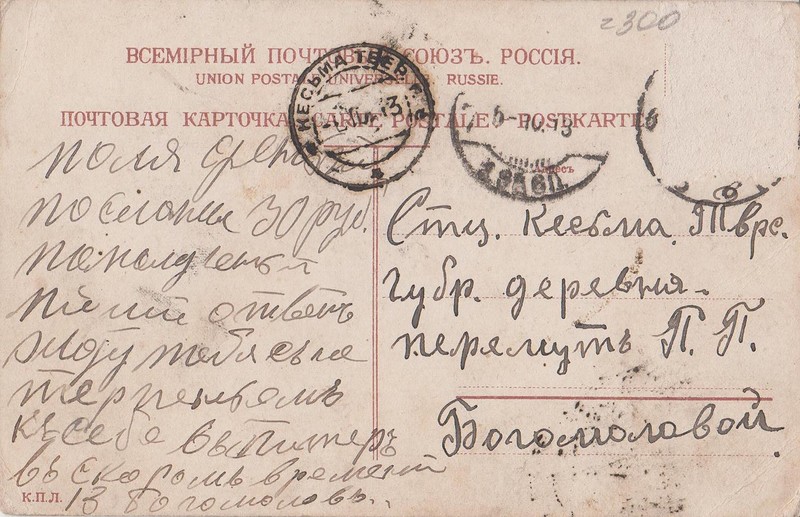 2300
ВСЕМІРНЫЙ ПОЧТОВЫЙ СОЮЗЪ. РОССІЯ.
UNION POSTALE UNIVERSELLE. RUSSIE.
ПОЧТОВАЯ КАРТОЧКА. CARTE POSTALE - POSTKARTE
КЕСЬМА ТВЕР.
6-10.13
Адресъ
поля
посланы 30 руб.
пиши отвѣтъ
жду тебя
терпеньемъ
къ себе въ питеръ
въ скоромъ времени
13 Богомоловъ.
Стц. Кесьма. Твpc.
губр. деревня.
перемутъ П. П.
Богомоловой.
К.П.Л.